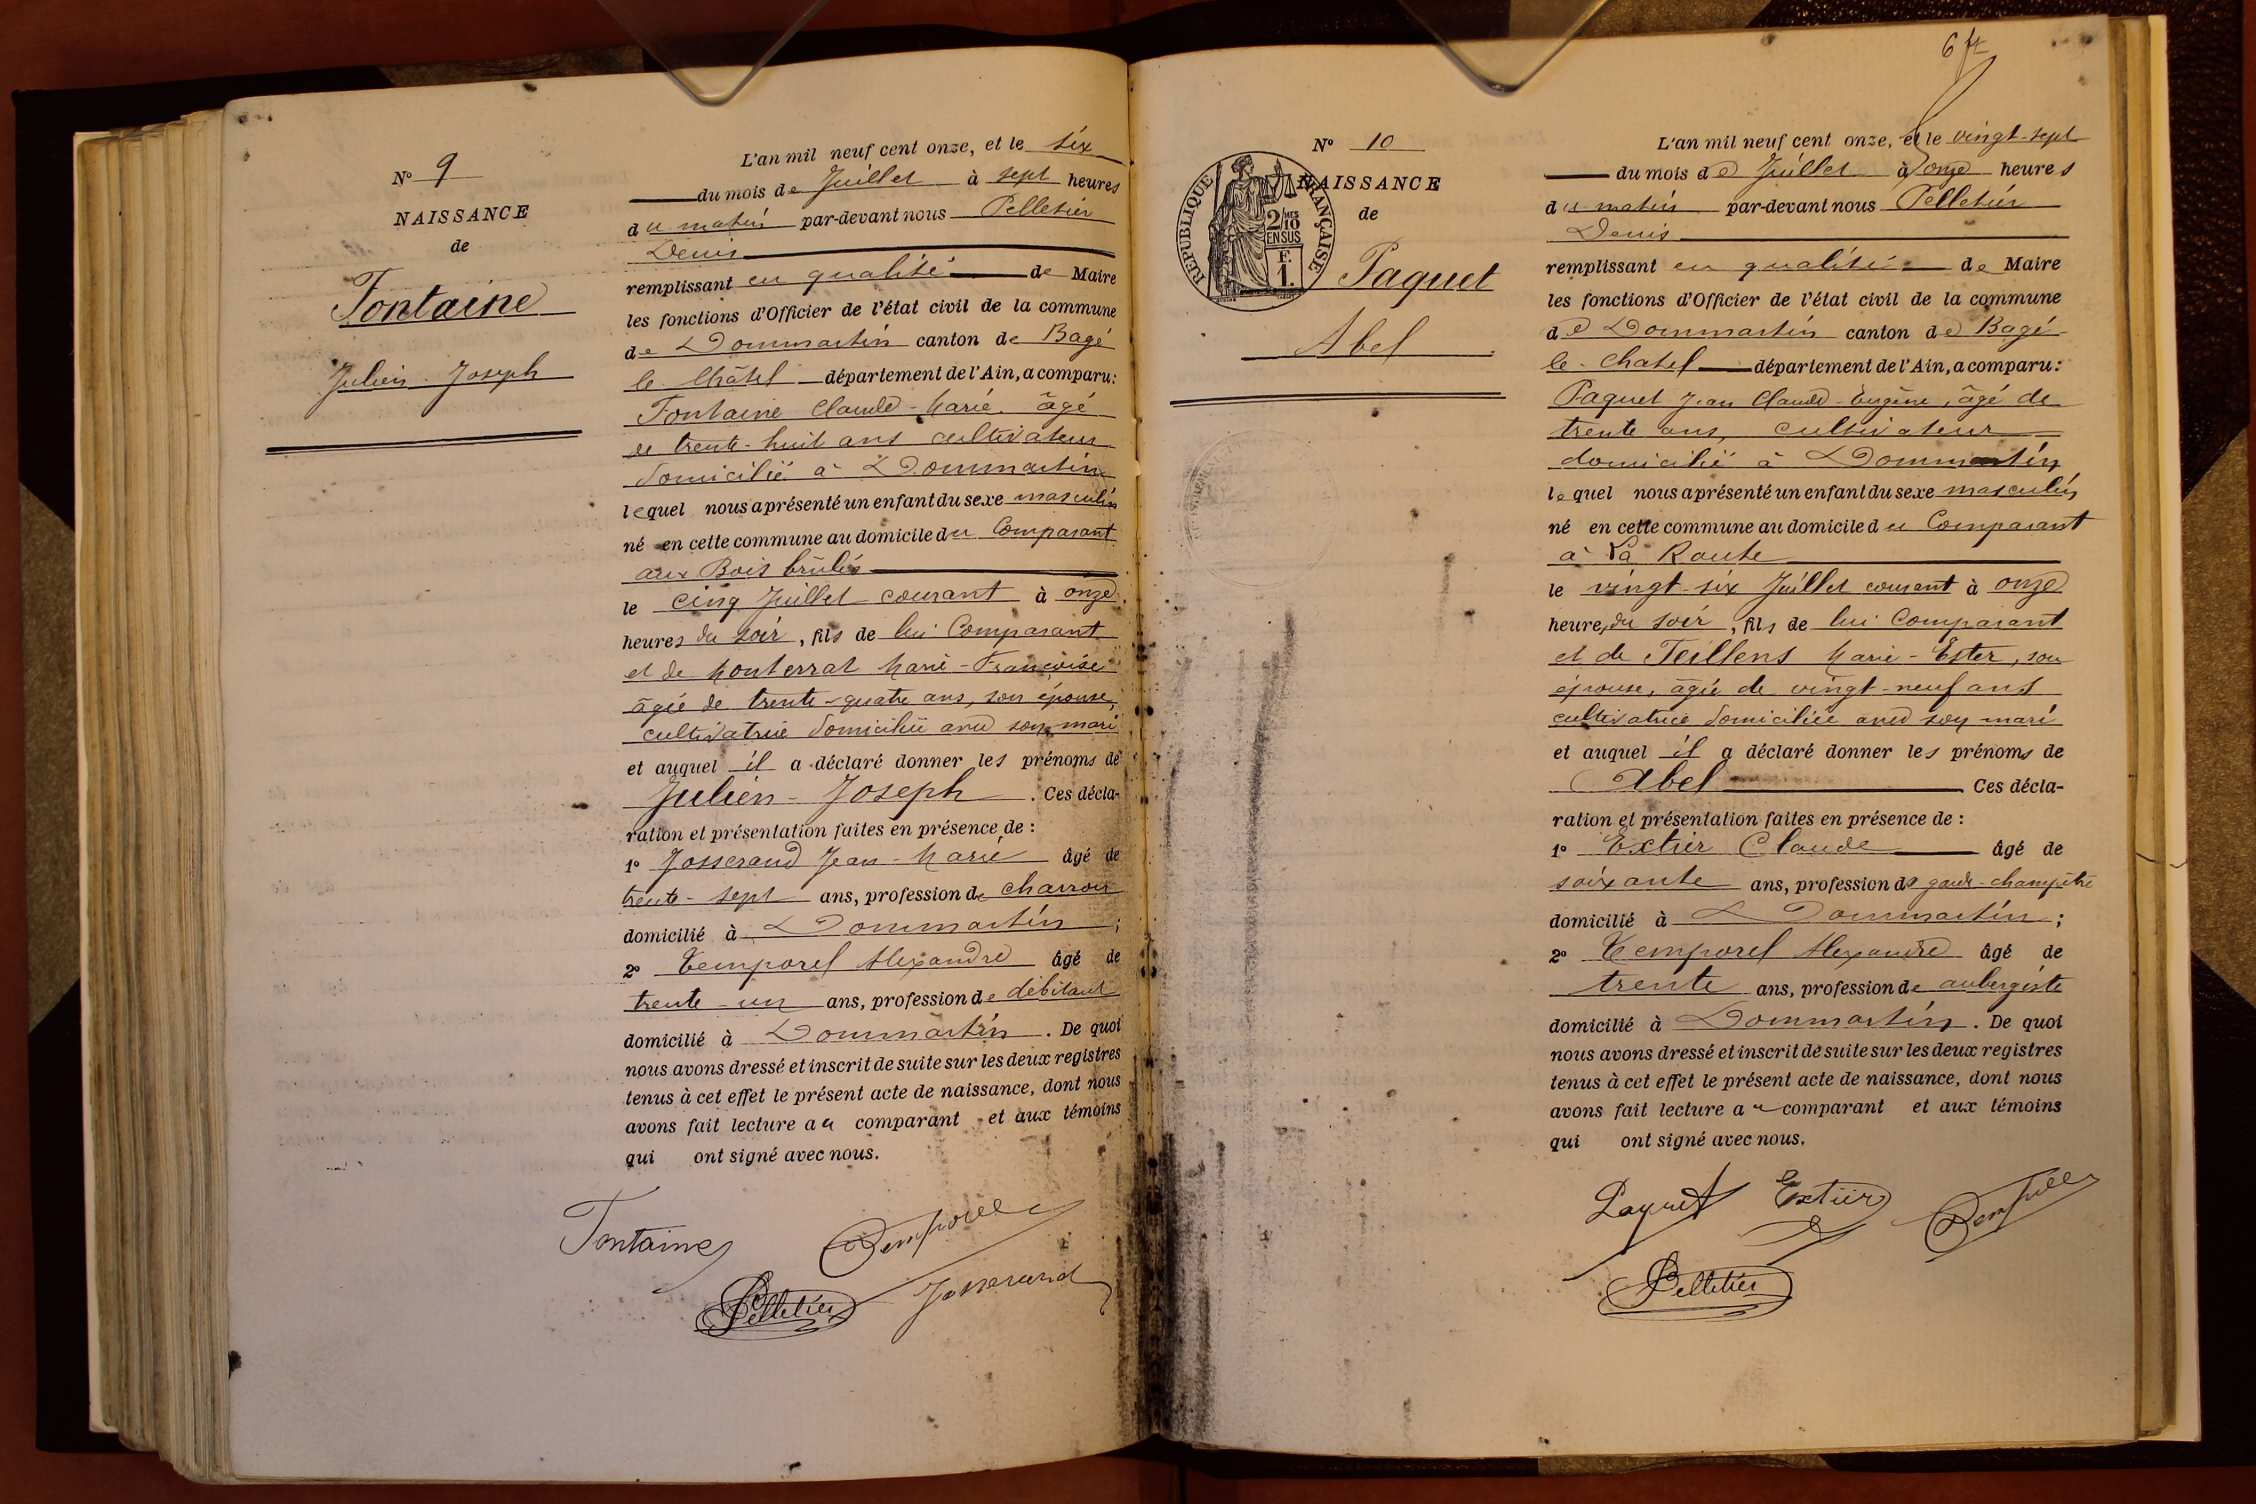 N° 9
NAISSANCE
de
Fontaine
Julien Joseph
L'an mil neuf cent onze, et le six
du mois de Juillet à sept heures
du matin par-devant nous Pelletier
Denis
remplissant en qualité de Maire
les fonctions d'Officier de l'état civil de la commune
de Dommartin canton de Bagé
le Châtel département de l'Ain, a comparu:
Fontaine Claude-Marie âgé
de trente-huit ans cultivateur
domicilié à Dommartin
lequel nous a présenté un enfant du sexe masculin
né en cette commune au domicile du Comparant
aux Bois brûlés
le cinq Juillet courant à onze
heures du soir, fils de lui Comparant
et de Monterrat Marie-Françoise
âgée de trente-quatre ans, son épouse,
cultivatrice domiciliée avec son mari
et auquel il a déclaré donner les prénoms de
Julien-Joseph. Ces décla-
ration et présentation faites en présence de :
1° Josserand Jean-Marie âgé de
trente-sept ans, profession de charron
domicilié à Dommartin ;
2° Temporel Alexandre âgé de
trente-un ans, profession de débitant
domicilié à Dommartin. De quoi
nous avons dressé et inscrit de suite sur les deux registres
tenus à cet effet le présent acte de naissance, dont nous
avons fait lecture au comparant et aux témoins
qui ont signé avec nous.
Fontaine
Temporel
Pelletier
Josserand
6
N° 10
NAISSANCE
de
RÉPUBLIQUE FRANÇAISE
2/10 MES
EN SUS
F.
1.
Paquet
Abel
L'an mil neuf cent onze, et le vingt-sept
du mois de Juillet à onze heures
du matin par-devant nous Pelletier
Denis
remplissant en qualité de Maire
les fonctions d'Officier de l'état civil de la commune
de Dommartin canton de Bagé
le-Chatel département de l'Ain, a comparu:
Paquet Jean Claude-Eugène, âgé de
trente ans, cultivateur
domicilié à Dommartin
lequel nous a présenté un enfant du sexe masculin
né en cette commune au domicile du Comparant
à La Route
le vingt-six Juillet courant à onze
heures du soir, fils de lui Comparant
et de Teillens Marie-Ester, son
épouse, âgée de vingt-neuf ans
cultivatrice domiciliée avec son mari
et auquel il a déclaré donner les prénoms de
Abel Ces décla-
ration et présentation faites en présence de :
1° Extier Claude âgé de
soixante ans, profession de garde-champêtre
domicilié à Dommartin ;
2° Temporel Alexandre âgé de
trente ans, profession de aubergiste
domicilié à Dommartin. De quoi
nous avons dressé et inscrit de suite sur les deux registres
tenus à cet effet le présent acte de naissance, dont nous
avons fait lecture au comparant et aux témoins
qui ont signé avec nous.
Paquet
Extier
Temporel
Pelletier